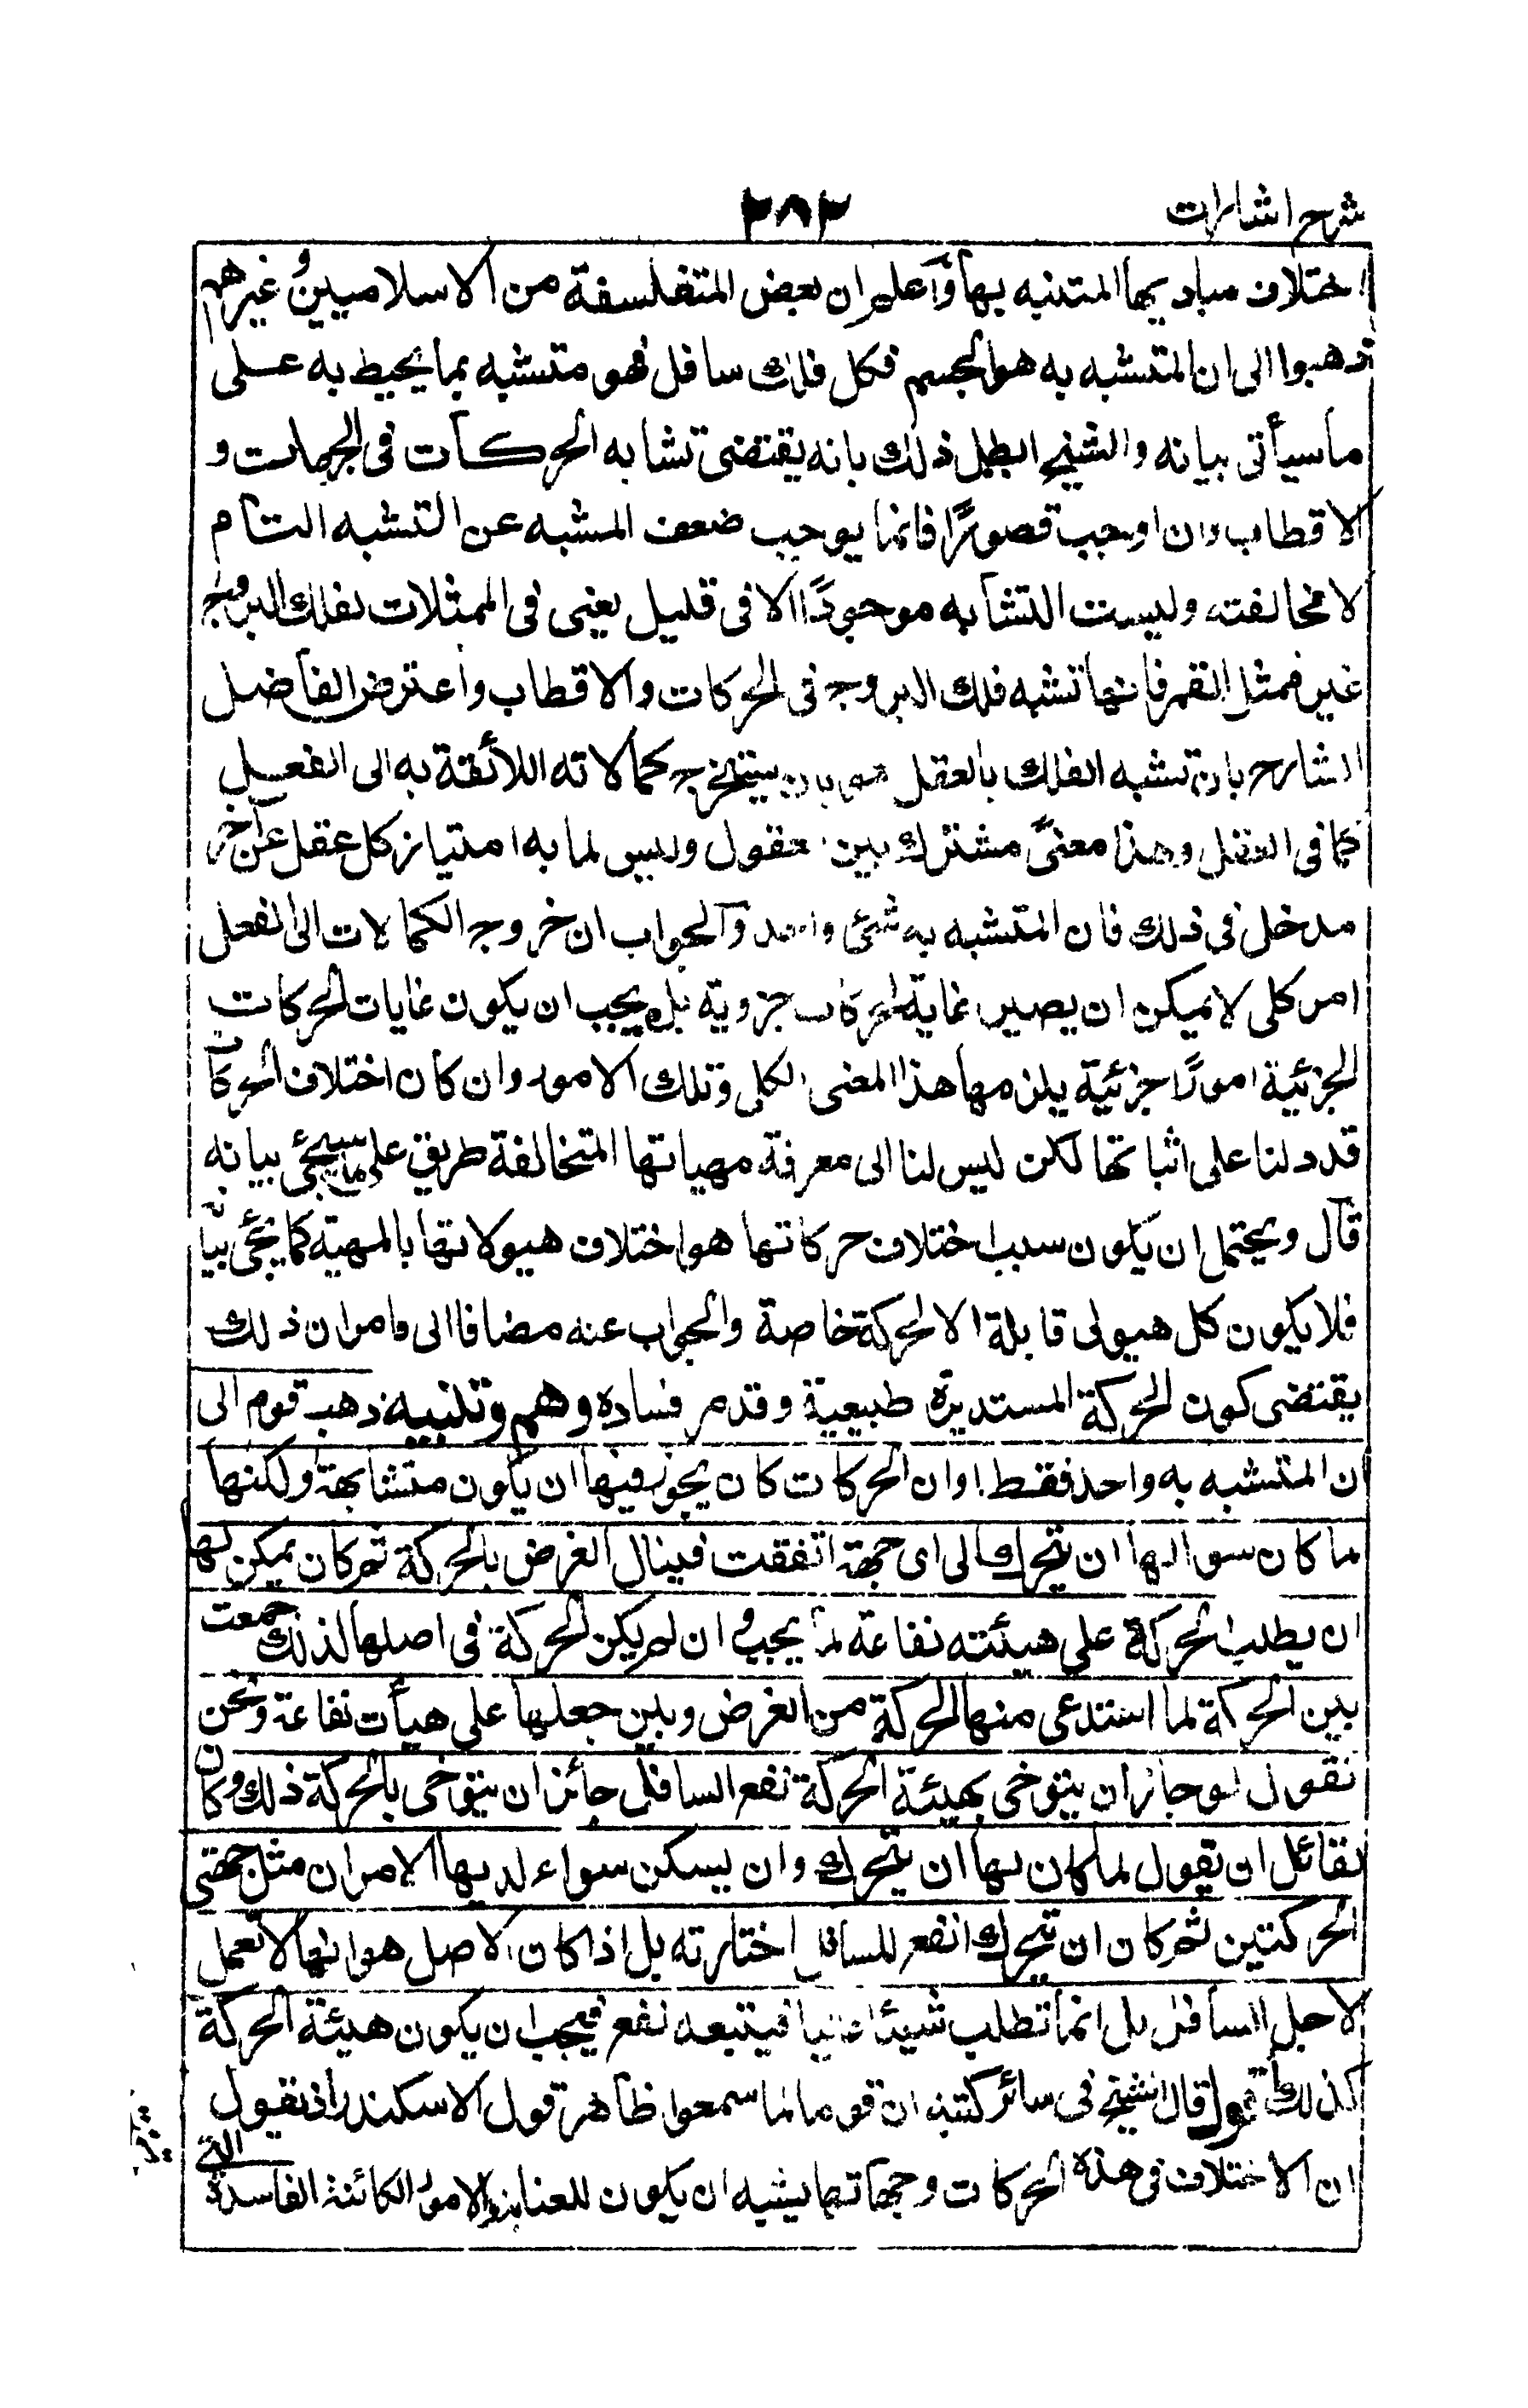 شرح اشارات ٢٨٢
اختلاف مباديها المتشبه بها واعلم ان بعض المتفلسفة من الاسلاميين وغيرهم
ذهبوا الى ان المتشبه به هو الجسم فكل فلك سافل فهو متشبه بما يحيط به على
ما سيأتى بيانه والشيخ ابطل ذلك بانه يقتضى تشابه الحركات فى الجهات و
الاقطاب وان اوجب قصورًا فانما يوجب ضعف المشبه عن التشبه التام
لا مخالفته وليست التشابه موجودًا الا فى قليل يعنى فى الممثلات لفلك البروج
غير ممثل القمر فانها تشبه فلك البروج فى الحركات والاقطاب واعترض الفاضل
الشارح بان تشبه الفلك بالعقل هو بان يستخرج كمالاته اللائقة به الى الفعل
كما فى العقل وهذا معنىً مشترك بين العقول وليس لما به امتياز كل عقل عن آخر
مدخل فى ذلك فان المتشبه به شئ واحد والجواب ان خروج الكمالات الى الفعل
امر كلى لا يمكن ان يصير غاية لحركات جزوية بل يجب ان يكون غايات الحركات
الجزئية امورًا جزئية يلزمها هذا المعنى الكلى وتلك الامور وان كان اختلاف الحركات
قد دلنا على اثباتها لكن ليس لنا الى معرفة مهياتها المتخالفة طريق على ما سيجئ بيانه
قال ويحتمل ان يكون سبب اختلاف حركاتها هو اختلاف هيولاتها بالمهية كما يجئ بيانه
فلا يكون كل هيولى قابلة الا لحركة خاصة والجواب عنه مضافا الى ما مر ان ذلك
يقتضى كون الحركة المستديرة طبيعية وقد مر فساده وهم وتنبيه ذهب قوم الى
ان المتشبه به واحد فقط وان الحركات كان يجوز فيها ان يكون متشابهة ولكنها
لما كان سواء لها ان يتحرك الى اى جهة اتفقت فينال الغرض بالحركة ثم كان يمكن لها
ان يطلب الحركة على هيئته نفاعة لما يجب وان لم يكن الحركة فى اصلها لذلك جمعت
بين الحركة لما استدعى منها الحركة من الغرض وبين جعلها على هيأت نفاعة ونحن
نقول لو جاز ان يتوخى بهيئة الحركة نفع السافل جائز ان يتوخى بالحركة ذلك وكان
لقائل ان يقول لما كان لها ان يتحرك وان يسكن سواء لديها الامران مثل جهتى
الحركتين ثم كان ان تتحرك انفع للسافل اختارته بل اذا كان الاصل هو انها لا تعمل
لاجل السافل بل انما تطلب شيئا عاليا فيتبعه نفع فيجب ان يكون هيئة الحركة
كذلك اقول قال الشيخ فى سائر كتبه ان قوما لما سمعوا ظاهر قول الاسكندر اذ يقول
ان الاختلاف فى هذه الحركات وجهاتها يشبه ان يكون للعناية بالامور الكائنة الفاسدة التى